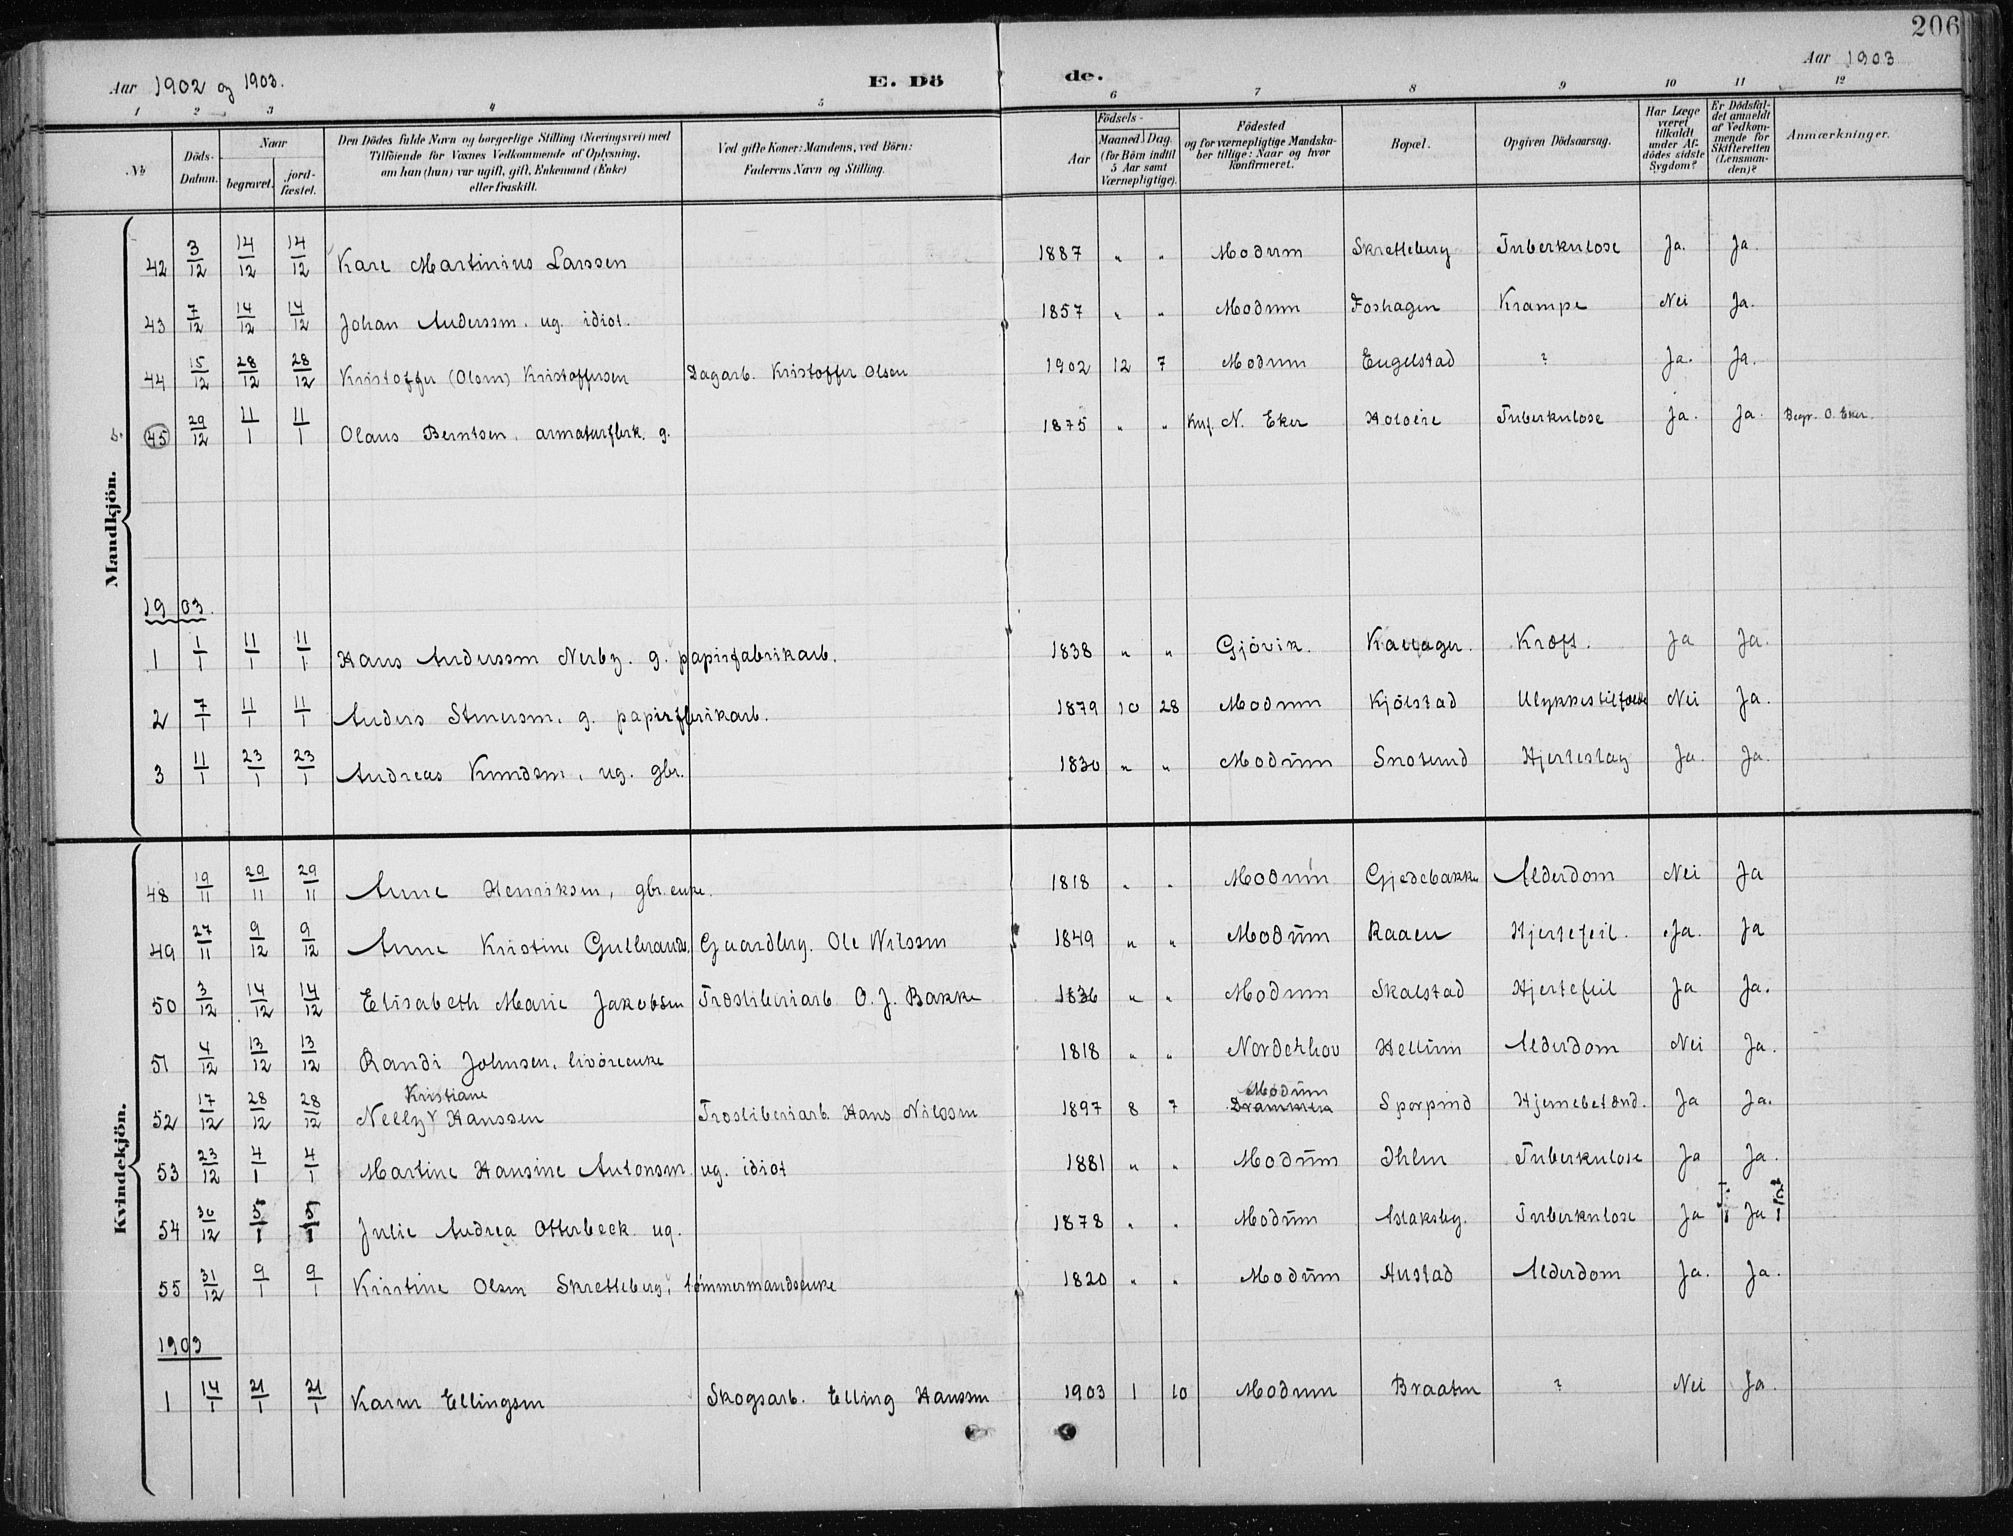 206
Aar 1902 og 1903. E. Dö de. Aar 1903
1 2 3 4 5 6 7 8 9 10 11 12
No
Döds-Datum.
Naar
begravet. jord-fæstet.
Den Dödes fulde Navn og borgerlige Stilling (Næringsvei) med
Tilföiende for Voxnes Vedkommende af Oplysning,
om han (hun) var ugift, gift, Enkemand (Enke)
eller fraskilt.
Ved gifte Koner: Mandens, ved Börn:
Faderens Navn og Stilling.
Födsels-
Aar Maaned Dag.
(for Börn indtil
5 Aar samt
Værnepligtige).
Födested
og for værnepligtige Mandska-
ber tillige: Naar og hvor
konfirmeret.
Bopæl.
Opgiven Dödsaarsag.
Har Læge
været
tilkaldt
under Af-
dödes sidste
Sygdom?
Er Dödsfal-
det anmeldt
af Vedkom-
mende for
Skifteretten
(Lensman-
den)?
Anmærkninger.
Mandkjön.
42 3/12 14/12 14/12 Karl Martinius Larssen 1887 " " Modum Skretteberg Tuberkulose Ja. Ja.
43 7/12 14/12 14/12 Johan Anderssen. ug. idiot. 1857 " " Modum Foshagen Krampe Nei Ja.
44 15/12 28/12 28/12 Kristoffer (Olsen) Kristoffersen Dagarb. Kristoffer Olsen 1902 12 7 Modum Engelstad ? Ja. Ja.
45 29/12 11/1 11/1 Olaus Berntsen. armaturfbrk. g. 1875 " " N. Eker Tuberkulose Ja. Ja. Begr. O. Eker.
1903.
1 1/1 11/1 11/1 Hans Anderssen Nerby. g. papirfabrikarb. 1838 " " Gjövik. Kræft. Ja Ja.
2 7/1 11/1 11/1 Anders Steenersen. g. papirfbrikarb. 1879 10 28 Modum Kjölstad Ulykkestilfælde Nei Ja.
3 11/1 23/1 23/1 Andreas Knudsen, ug. gbr. 1830 " " Modum Snarum Hjerteslag Ja. Ja.
Kvindekjön.
48 19/11 29/11 29/11 Anne Henriksen, gbr.enke. 1818 " " Modum Gjedebakke Alderdom Nei Ja
49 27/11 9/12 9/12 Anne Kristine Gulbrands. Gaardbrg. Ole Nilssen 1849 " " Modum Raaen Hjertefeil. Ja. Ja
50 3/12 14/12 14/12 Elisabeth Marie Jakobsen Træsliberiarb. O. J. Bakke 1836 " " Modum Skalstad Hjertefeil Ja Ja.
51 4/12 13/12 13/12 Randi Johnsen. livöreenke 1818 " " Norderhov Hellum Alderdom Nei Ja.
Kristiane Modum
52 17/12 28/12 28/12 Nelly Hanssen Træsliberiarb. Hans Nilssen 1897 8 7 Drammen Sporpind Hjernebetænd. Ja Ja.
53 23/12 4/1 4/1 Martine Hansine Antonsen ug. idiot 1881 " " Modum Ihlen Tuberkulose Ja Ja.
54 30/12 5/1 5/1 Julie Andrea Otterbeck. ug. 1878 " " Modum Aslaksby. Tuberkulose Ja Ja
55 31/12 9/1 9/1 Kristine Olsen Skretteberg, tömmermandsenke 1820 " " Modum Hustad Alderdom Ja. Ja.
1903
1 14/1 21/1 21/1 Karen Ellingsen Skogsarb. Elling Hanssen 1903 1 10 Modum Braaten ? Nei Ja.